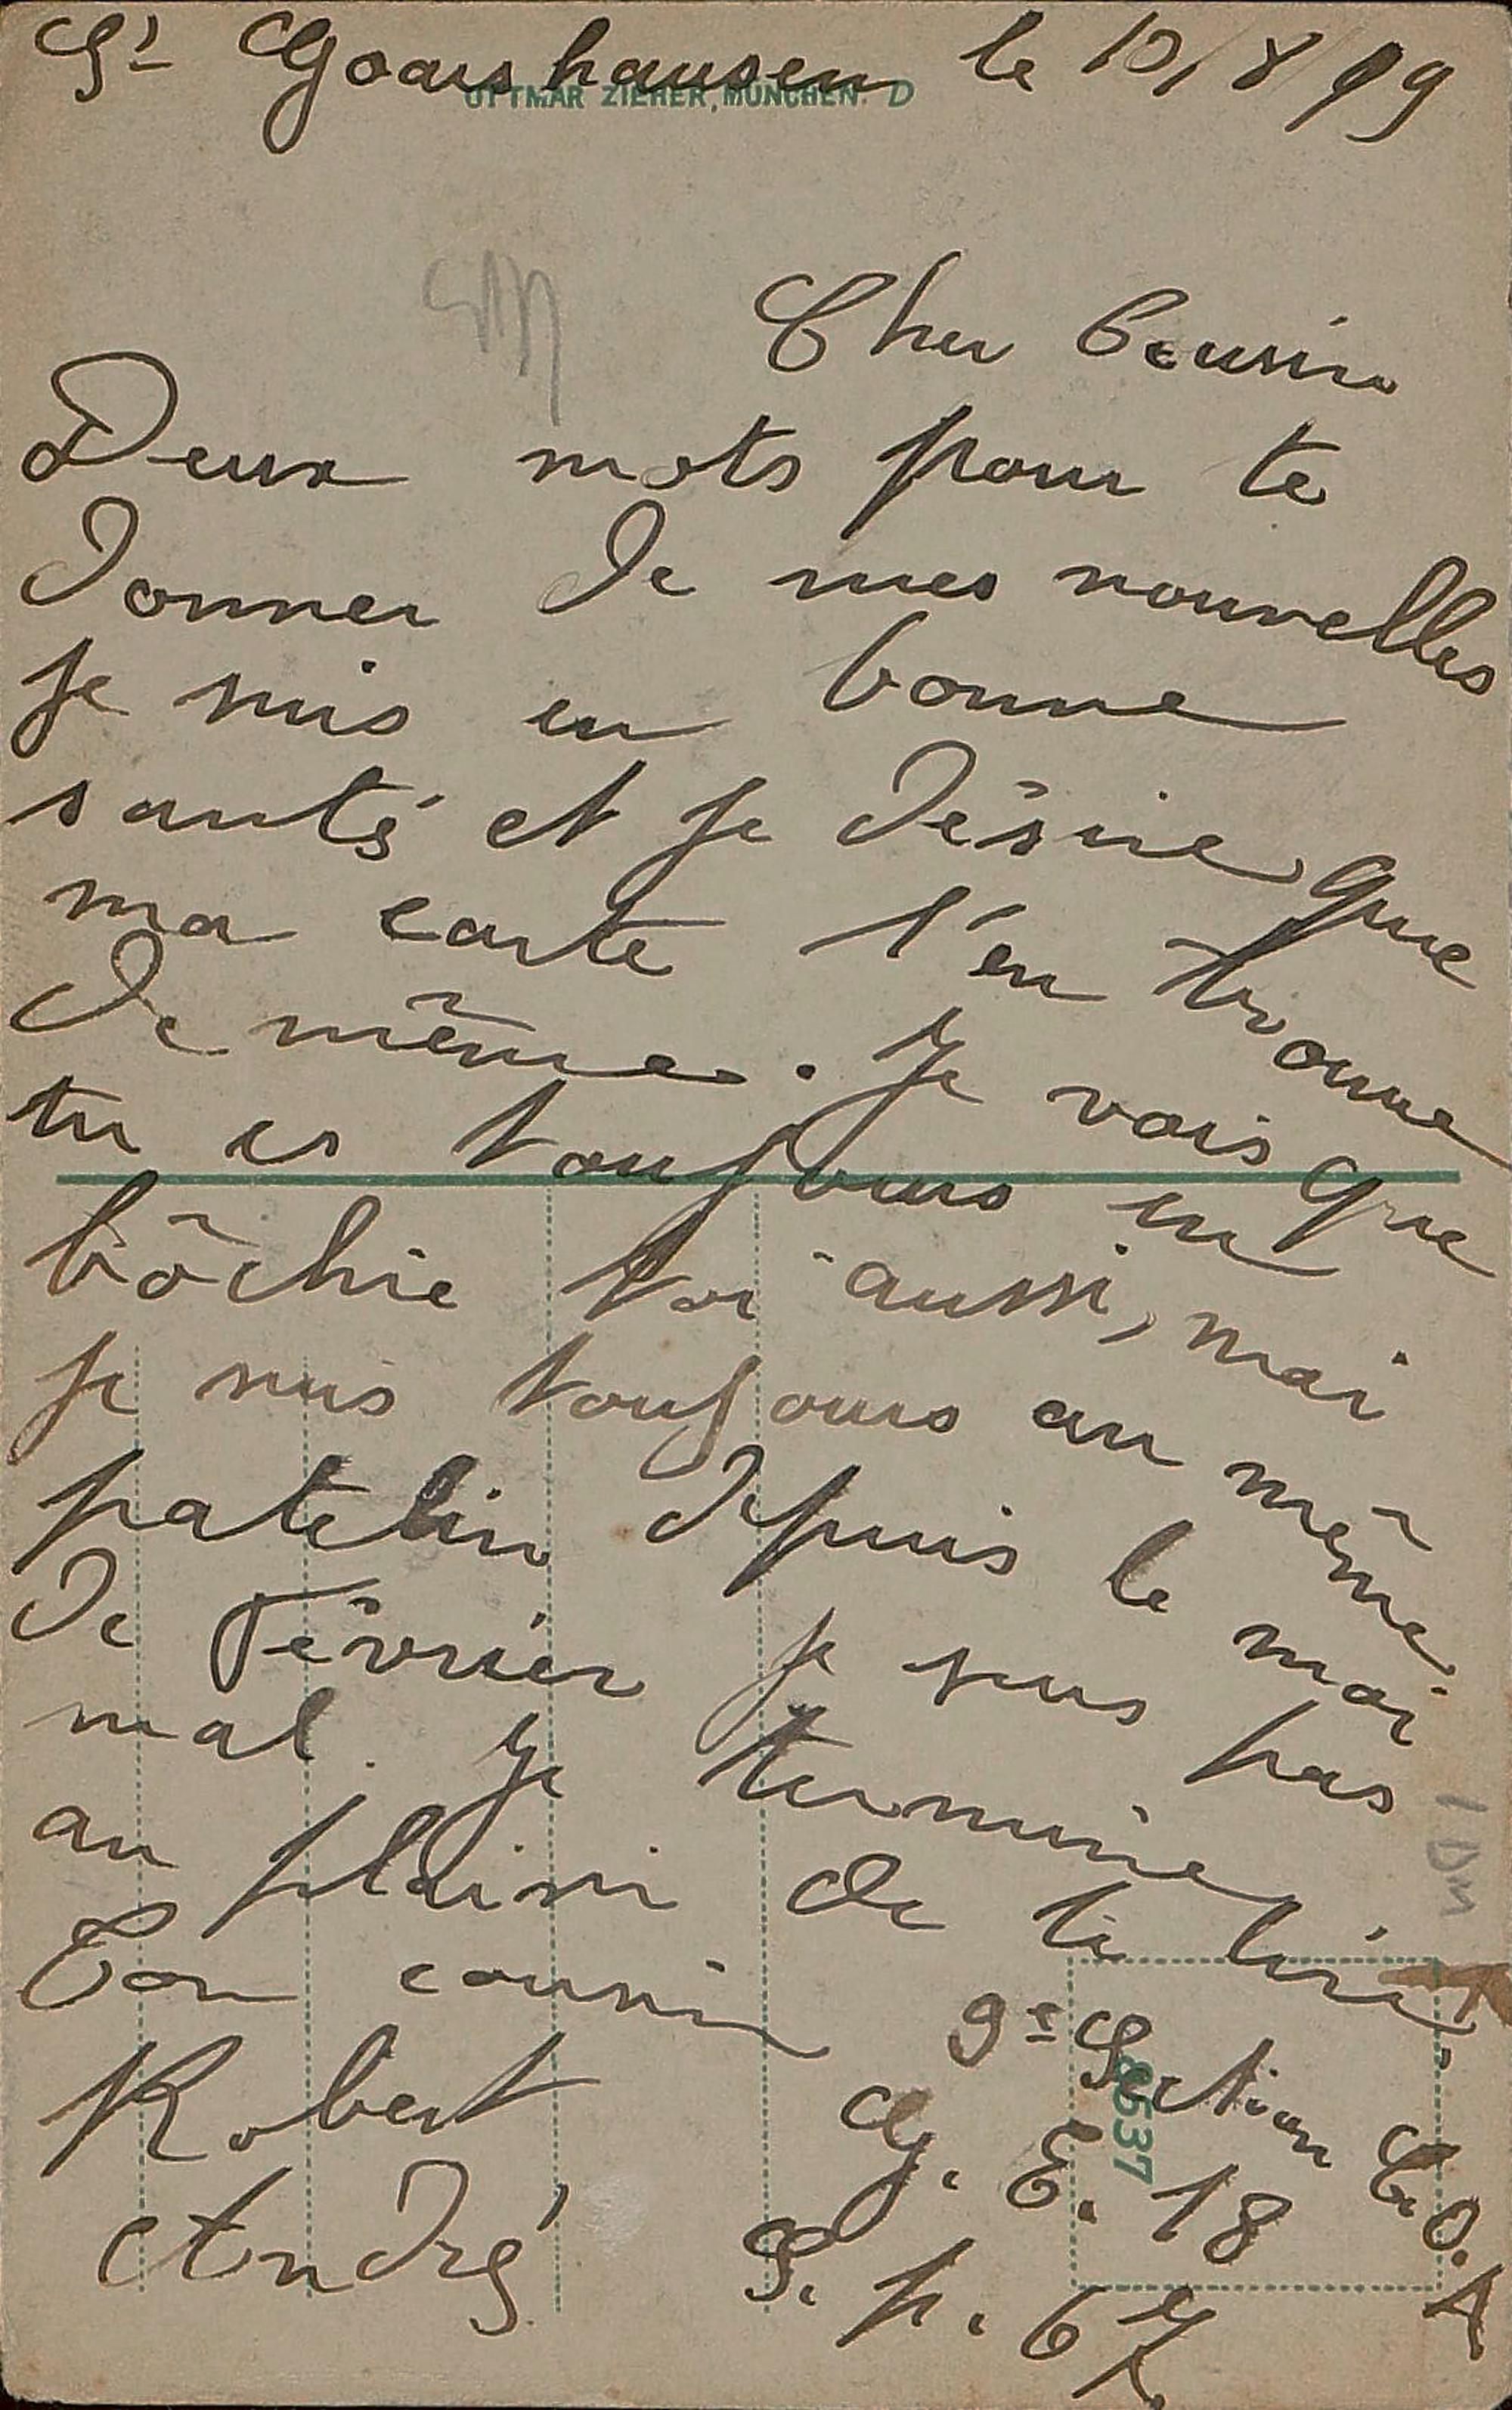 St Goarshausen le 10/8/19
OTTMAR ZIEHER, MÜNCHEN. D
Cher Cousin
Deux mots pour te
donner de mes nouvelles
je suis en bonne
santé et je désire que
ma carte t'en trouve
de même. Je vois que
tu es toujours en
bôchie toi aussi, mai
je suis toujours au même
patelin depuis le moi
de Février je suis pas
mal. Je termine
au plaisir de te lire.
Ton cousin
Robert
André
9e Section C.O.A
G. E. 18
S. p. 67
8537
1 DM